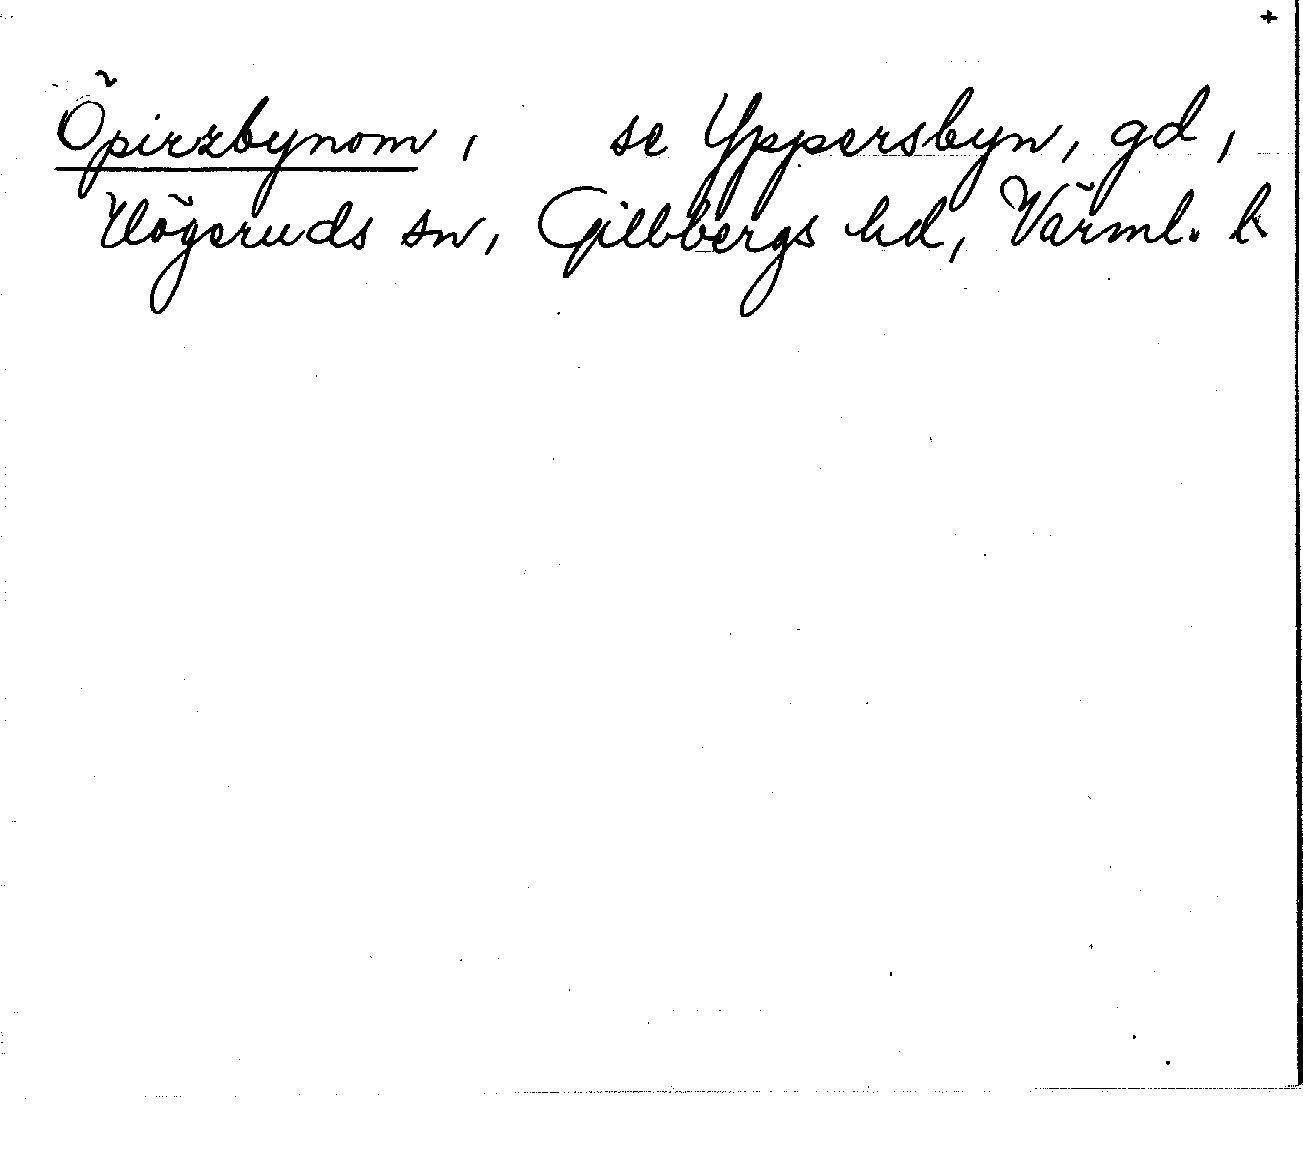 +
Öpirzbynom, se Yppersbyn, gd,
Högeruds sn, Gillbergs hd, Värml. l.